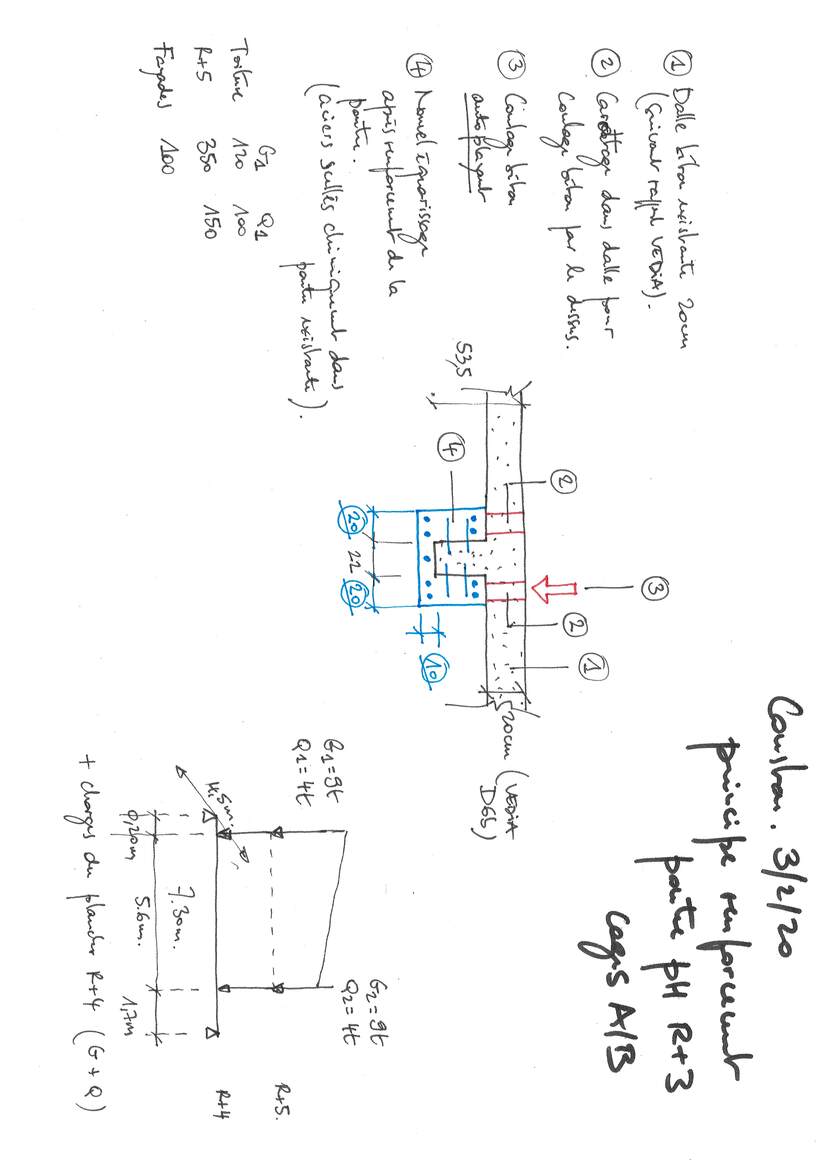 Constron. 3/2/20
principe renforcement
poutre pH R+3
cages A/B
① Dalle béton existante 20cm
(suivant rappel VEDIA).
② Carottage dans dalle pour
coulage béton par le dessus.
③ Coulage béton
autoplaçant
④ Nouvel équarissage
après renforcement de la
poutre.
(aciers scellés chimiquement dans
poutre existante).
G1 Q1
Toiture 120 100
R+5 350 150
Façades 100
③
②
②
①
20cm (VEDIA
D65)
53,5
④
10
20 22 20
G2 = 9t
Q2 = 4t
G1 = 9t
Q1 = 4t
R+5.
R+4
5m.
7.30m.
0,20m 5.6m. 1,7m
+ charges du plancher R+4 (G+Q)